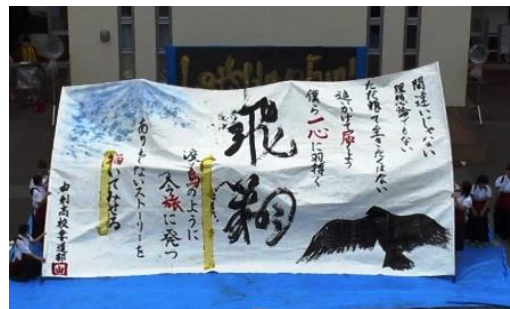 間違いじゃない
理想論でもない
ただ 生きたくはない
追いかけて届くよう
僕ら一心に羽搏く
飛翔
渡り鳥のように
今旅に発つ
ありもしないストーリーを
描いてみせる
由利高校書道部